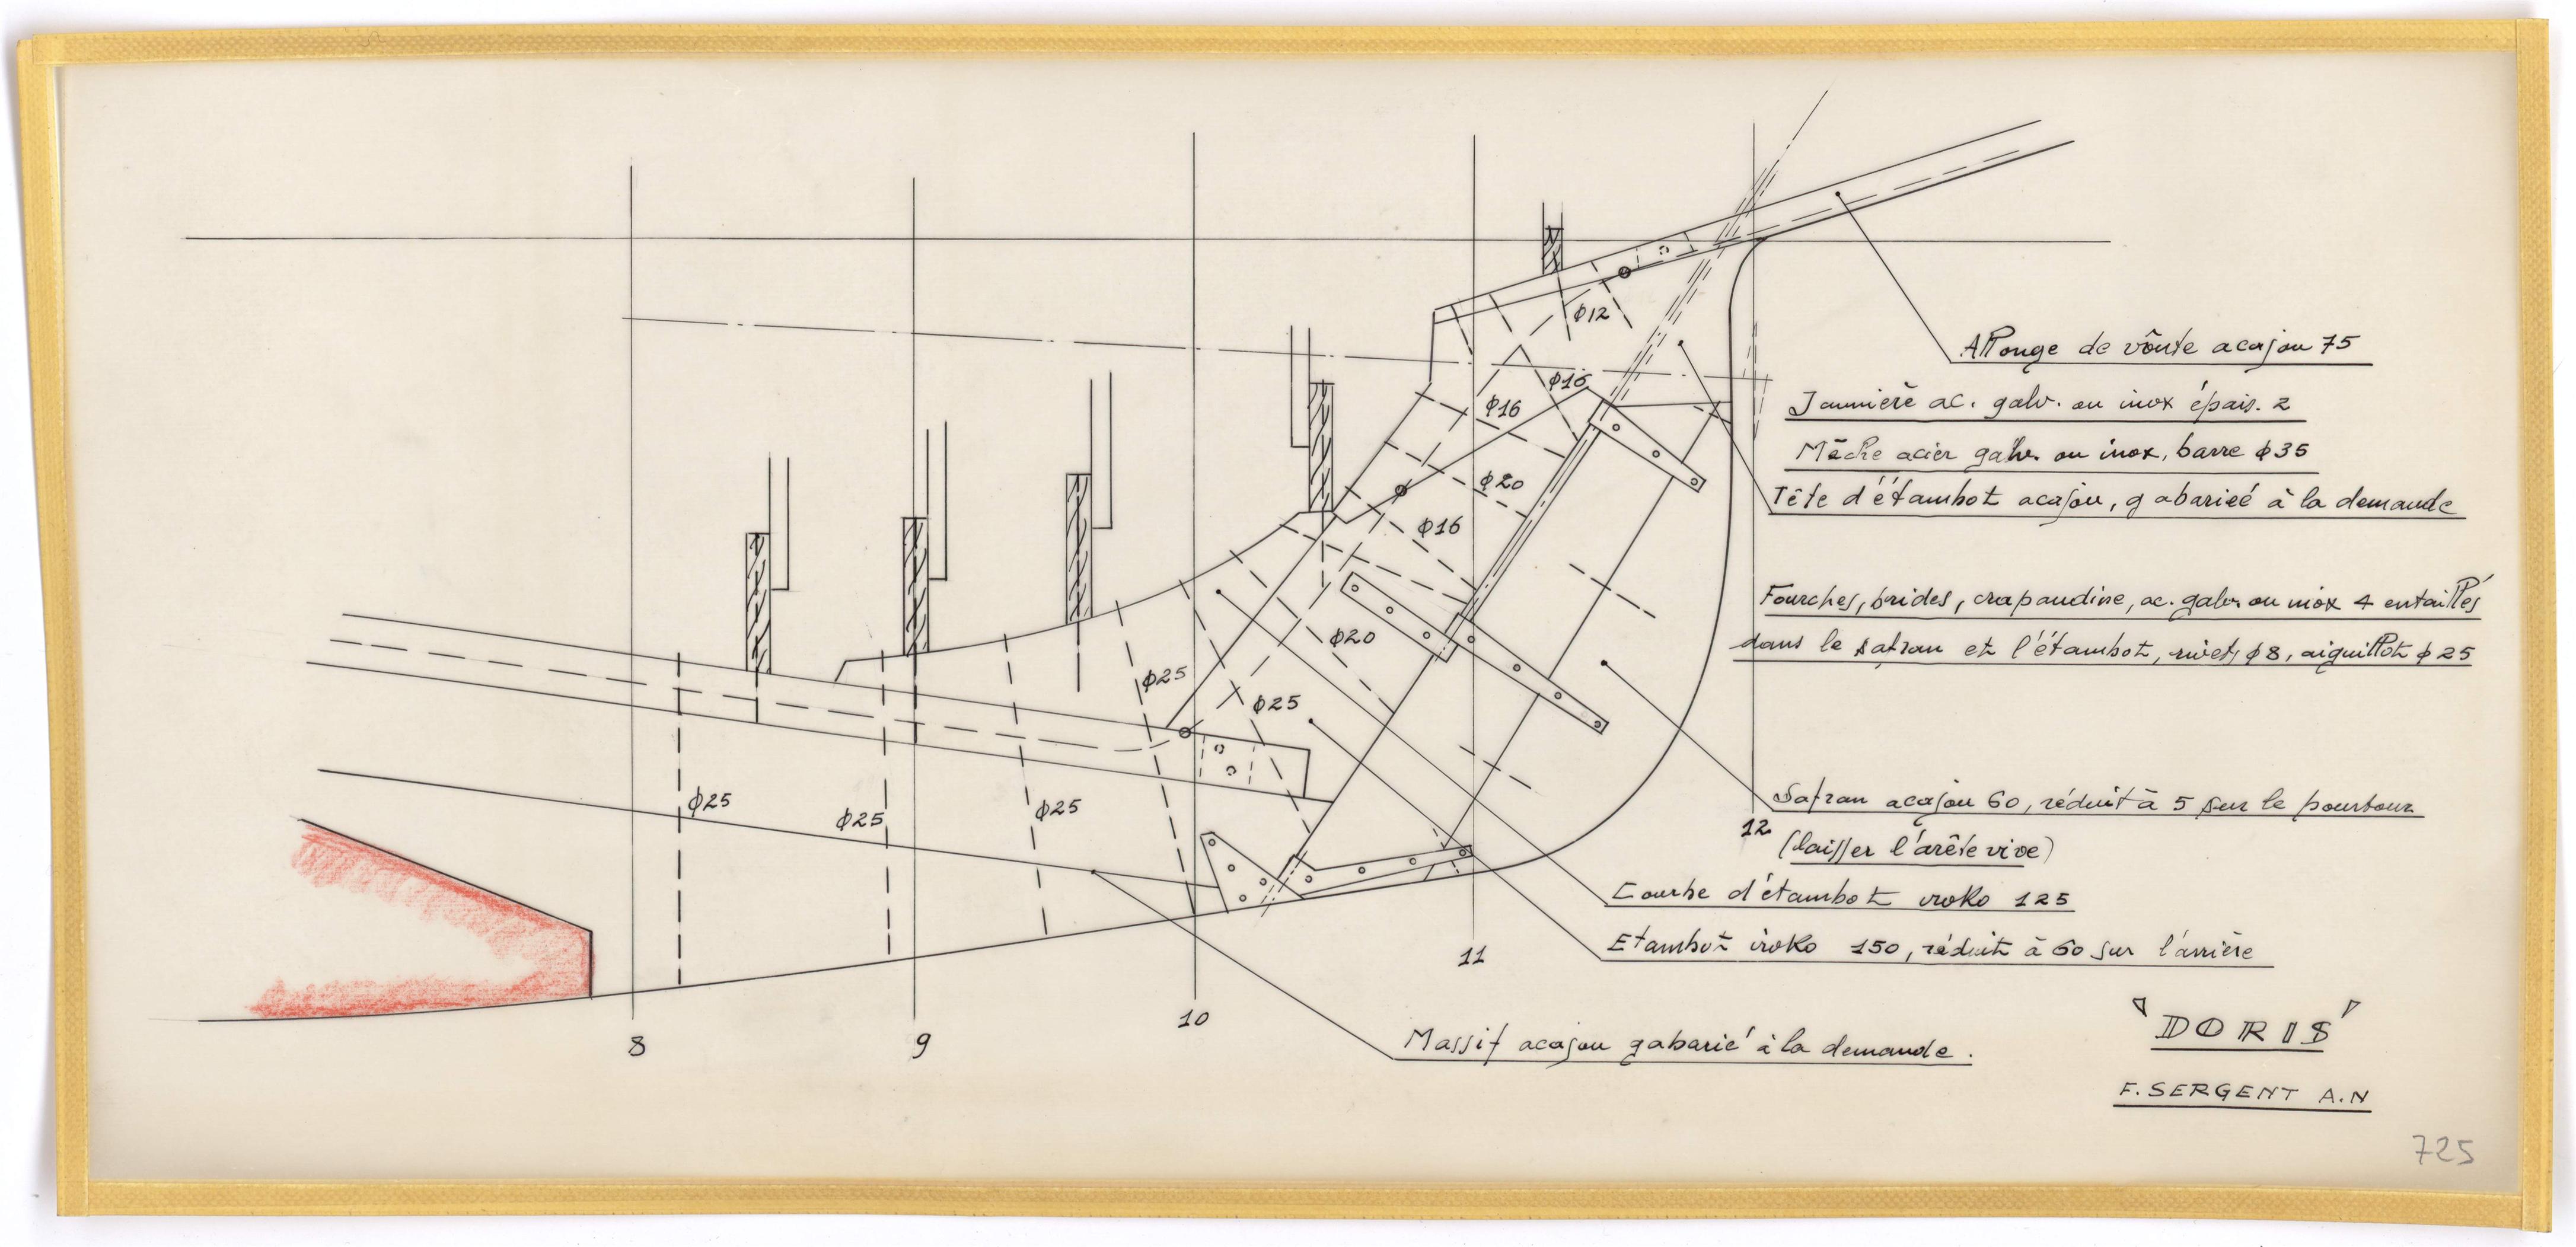 ϕ12
ϕ16
ϕ16
ϕ20
ϕ16
ϕ20
ϕ25
ϕ25
ϕ25
ϕ25
ϕ25
Allonge de voûte acajou 75
Jaumière ac. galv. ou inox épais. 2
Mèche acier galv. ou inox, barre ϕ35
Tête d'étambot acajou, gabariée à la demande
Fourches, brides, crapaudine, ac. galv. ou inox 4 entaillés
dans le safran et l'étambot, rivets ϕ8, aiguillot ϕ25
Safran acajou 60, réduit à 5 sur le pourtour
12
(laisser l'arête vive)
Courbe d'étambot iroko 125
Etambot iroko 150, réduit à 60 sur l'arrière
11
10
8
9
Massif acajou gabarié à la demande.
"DORIS"
F. SERGENT A.N
725